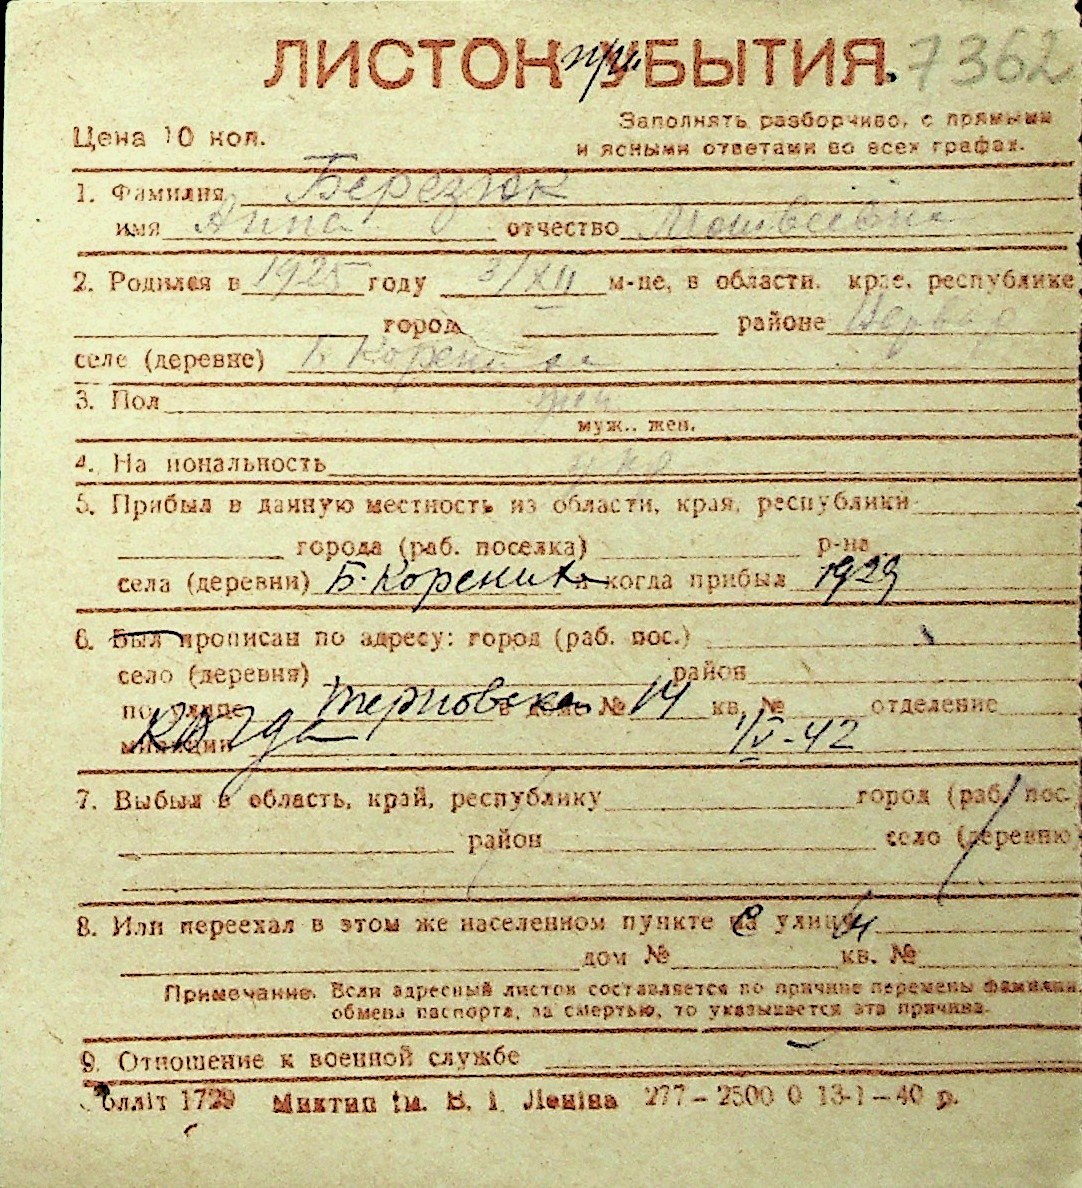 ЛИСТОК при УБЫТИЯ. 7362
Цена 10 коп.
Заполнять разборчиво, с прямыми
и ясными ответами во всех графах.
1. Фамилия Березюк
имя Анна отчество Матвеевна
2. Родился в 1925 году 3/XII м-це, в области, крае, республике
город районе Первод
селе (деревне) Б. Корениха
3. Пол жен
муж., жен.
4. На иональность укр
5. Прибыл в данную местность из области, края, республики
города (раб. поселка) р-на
села (деревни) Б. Корениха и когда прибыл 1929
6. Был прописан по адресу: город (раб. пос.)
село (деревня) район
по улице Терновска в доме № 14 кв. № отделение
милиции куда 1/IV-42
7. Выбыл в область, край, республику город (раб. пос.
район село (деревню)
8. Или переехал в этом же населенном пункте на улицу
дом № кв. №
Примечание. Если адресный листок составляется по причине перемены фамилии,
обмена паспорта, за смертью, то указывается эта причина.
9. Отношение к военной службе
облліт 1729 Миктип ім. В. І. Леніна 277–2500 0 13-1–40 р.